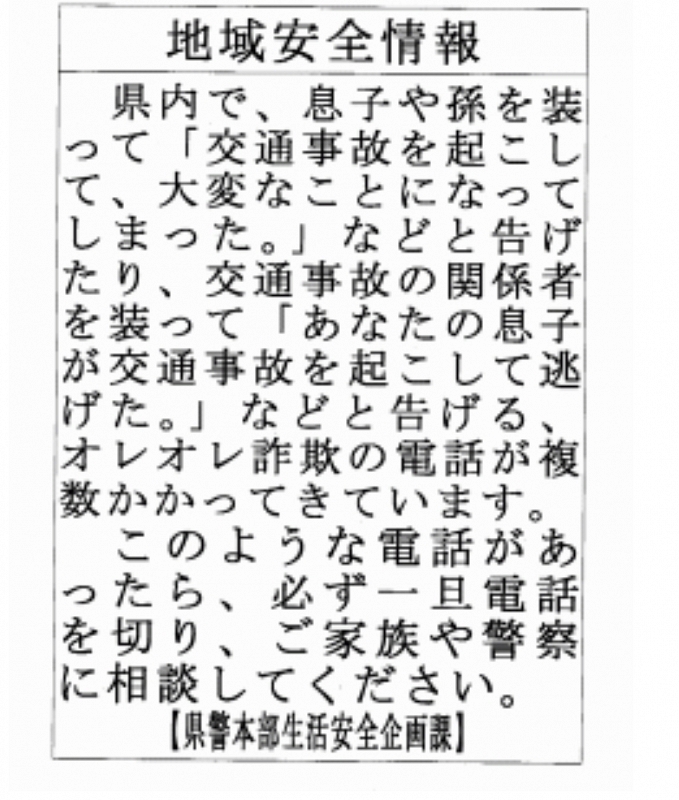 地域安全情報
県内で、息子や孫を装
って「交通事故を起こし
て、大変なことになって
しまった。」などと告げ
たり、交通事故の関係者
を装って「あなたの息子
が交通事故を起こして逃
げた。」などと告げる、
オレオレ詐欺の電話が複
数かかってきています。
このような電話があ
ったら、必ず一旦電話
を切り、ご家族や警察
に相談してください。
【県警本部生活安全企画課】